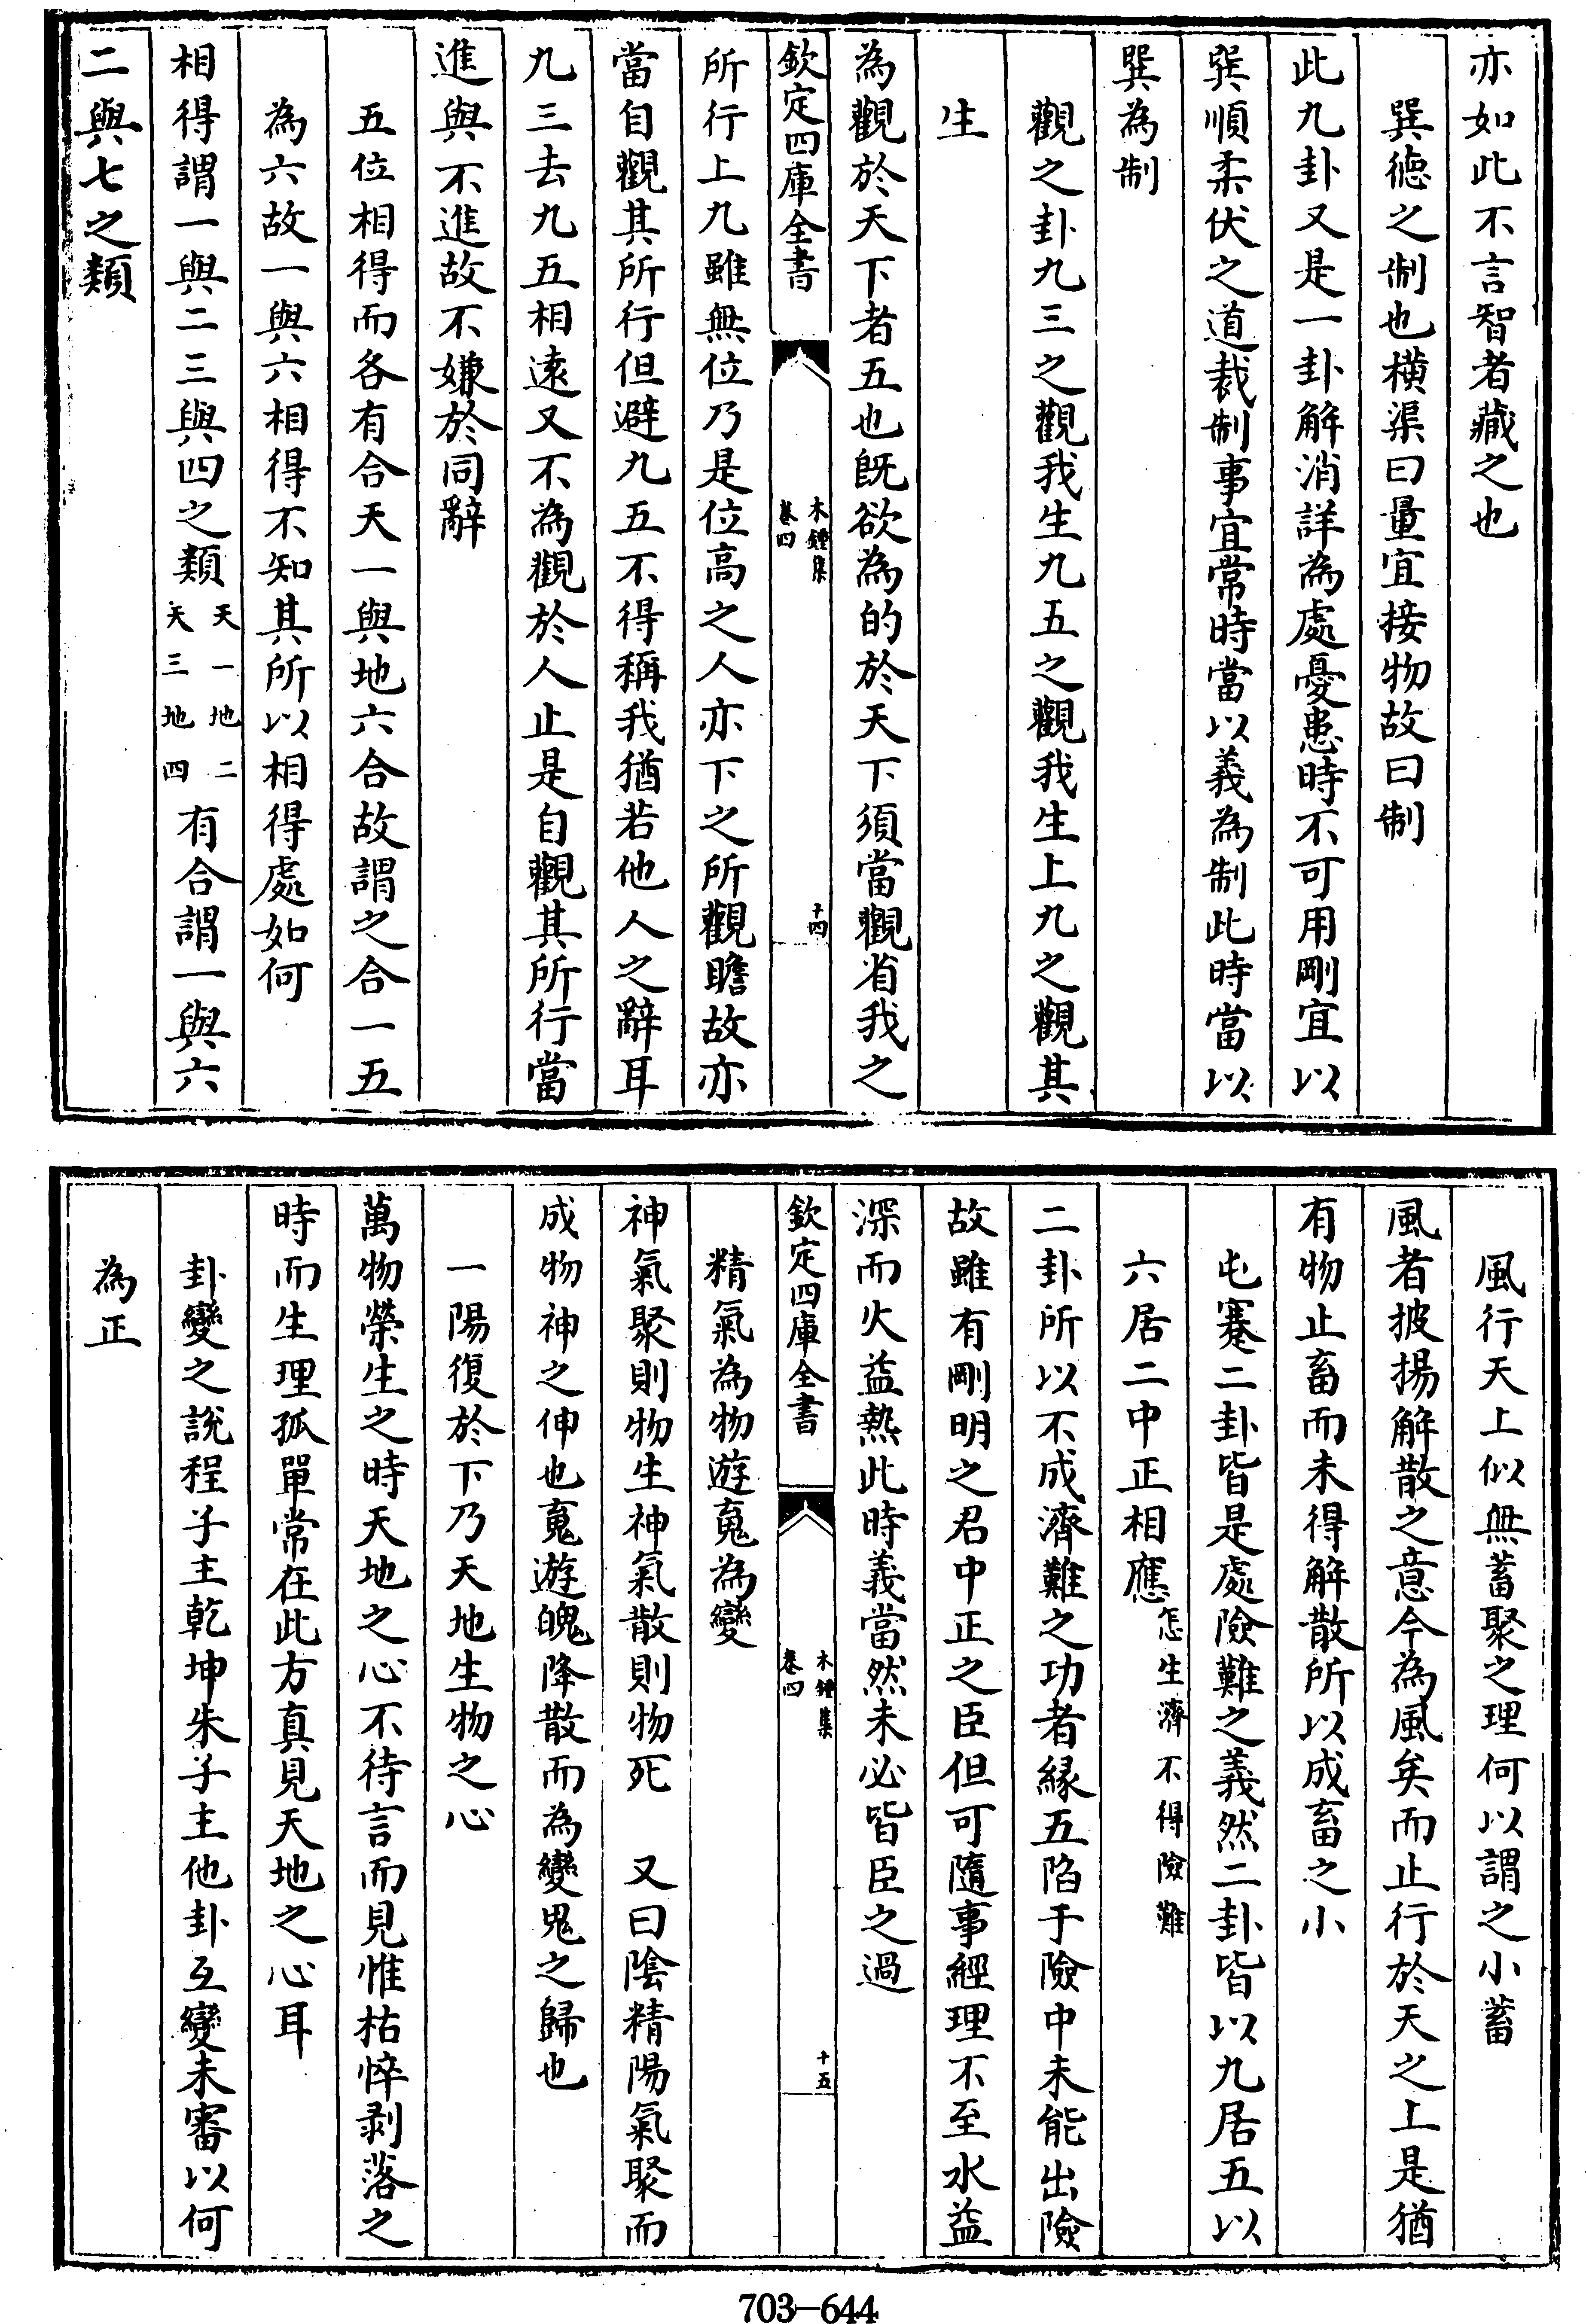 亦如此不言智者藏之也
巽德之制也橫渠曰量宜接物故曰制
此九卦又是一卦解消詳為處憂患時不可用剛宜以
巽順柔伏之道裁制事宜常時當以義為制此時當以
巽為制
觀之卦九三之觀我生九五之觀我生上九之觀其
生
為觀於天下者五也既欲為的於天下須當觀省我之
欽定四庫全書
木鐘集
卷四
十四
所行上九雖無位乃是位高之人亦下之所觀瞻故亦
當自觀其所行但避九五不得稱我猶若他人之辭耳
九三去九五相遠又不為觀於人止是自觀其所行當
進與不進故不嫌於同辭
五位相得而各有合天一與地六合故謂之合一五
為六故一與六相得不知其所以相得處如何
相得謂一與二三與四之類天一地二天三地四有合謂一與六
二與七之類
風行天上似無蓄聚之理何以謂之小蓄
風者披揚解散之意今為風矣而止行於天之上是猶
有物止畜而未得解散所以成畜之小
屯蹇二卦皆是處險難之義然二卦皆以九居五以
六居二中正相應怎生濟不得險難
二卦所以不成濟難之功者緣五陷于險中未能出險
故雖有剛明之君中正之臣但可隨事經理不至水益
深而火益熱此時義當然未必皆臣之過
欽定四庫全書
木鐘集
卷四
十五
精氣為物遊䰟為變
神氣聚則物生神氣散則物死 又曰陰精陽氣聚而
成物神之伸也䰟遊魄降散而為變鬼之歸也
一陽復於下乃天地生物之心
萬物榮生之時天地之心不待言而見惟枯悴剥落之
時而生理孤單常在此方真見天地之心耳
卦變之說程子主乾坤朱子主他卦互變未審以何
為正
703-644